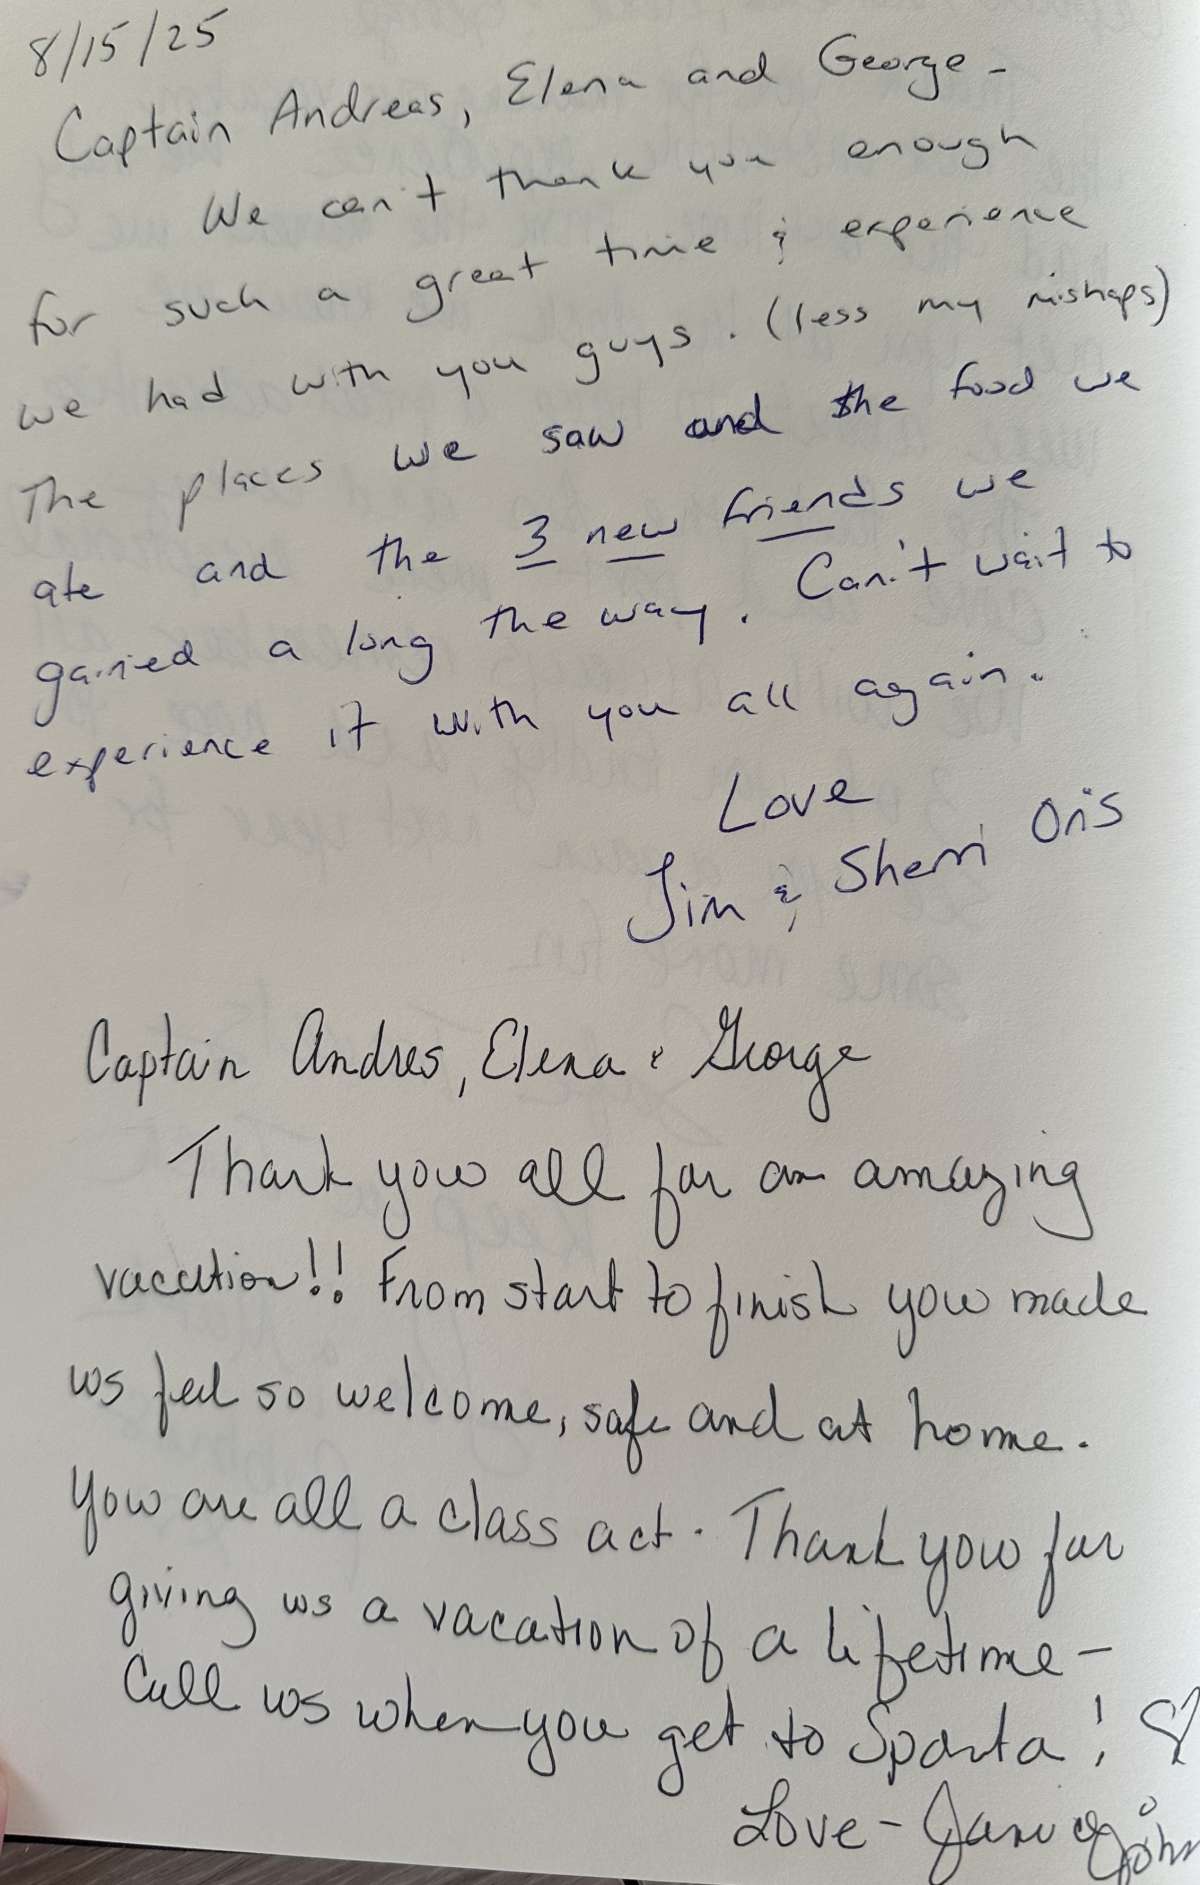 8/15/25
Captain Andreas, Elena and George -
We can't thank you enough
for such a great time & experience
we had with you guys. (less my mishaps)
The places we saw and the food we
ate and the 3 new friends we
gained a long the way. Can't wait to
experience it with you all again.
Love
Jim & Sherri Oris
Captain Andres, Elena & George
Thank you all for an amazing
vacation!! From start to finish you made
us feel so welcome, safe and at home.
You are all a class act. Thank you for
giving us a vacation of a lifetime -
Call us when you get to Sparta! ♡
Love - Janice John